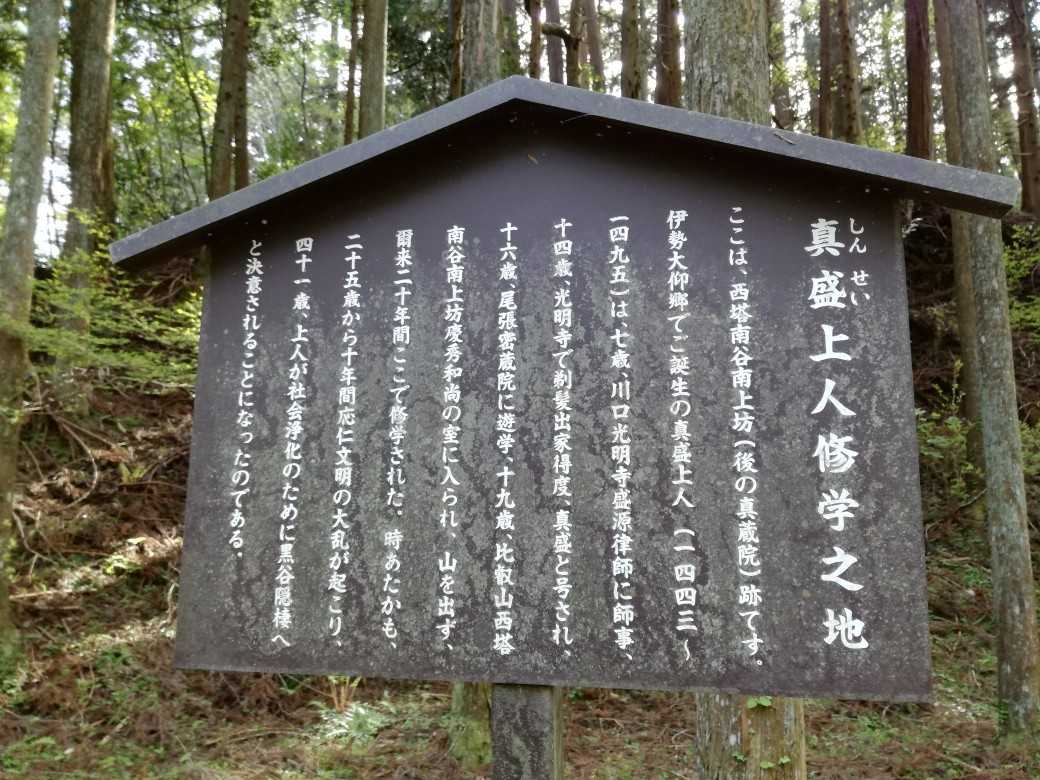 しんせい
真盛上人修学之地
ここは、西塔南谷南上坊(後の真蔵院)跡です。
伊勢大仰郷でご誕生の真盛上人(一四四三〜
一四九五)は、七歳、川口光明寺盛源律師に師事、
十四歳、光明寺で剃髪出家得度、真盛と号され、
十六歳、尾張密蔵院に遊学、十九歳、比叡山西塔
南谷南上坊慶秀和尚の室に入られ、山を出ず、
爾来二十年間ここで修学された。時あたかも、
二十五歳から十年間応仁文明の大乱が起こり、
四十一歳、上人が社会浄化のために黒谷隠棲へ
と決意されることになったのである。